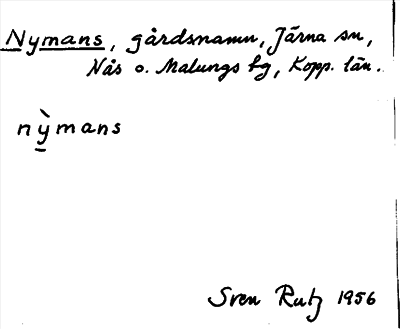 Nymans, gårdsnamn, Järna sn,
Nås o. Malungs fg, Kopp. län.
nỳ̠mans
Sven Rutz 1956